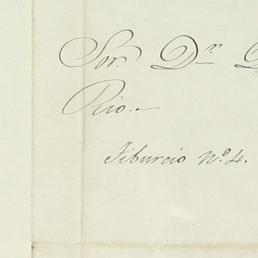 Sor. Dr.
Rio.
Tiburcio No. 4.